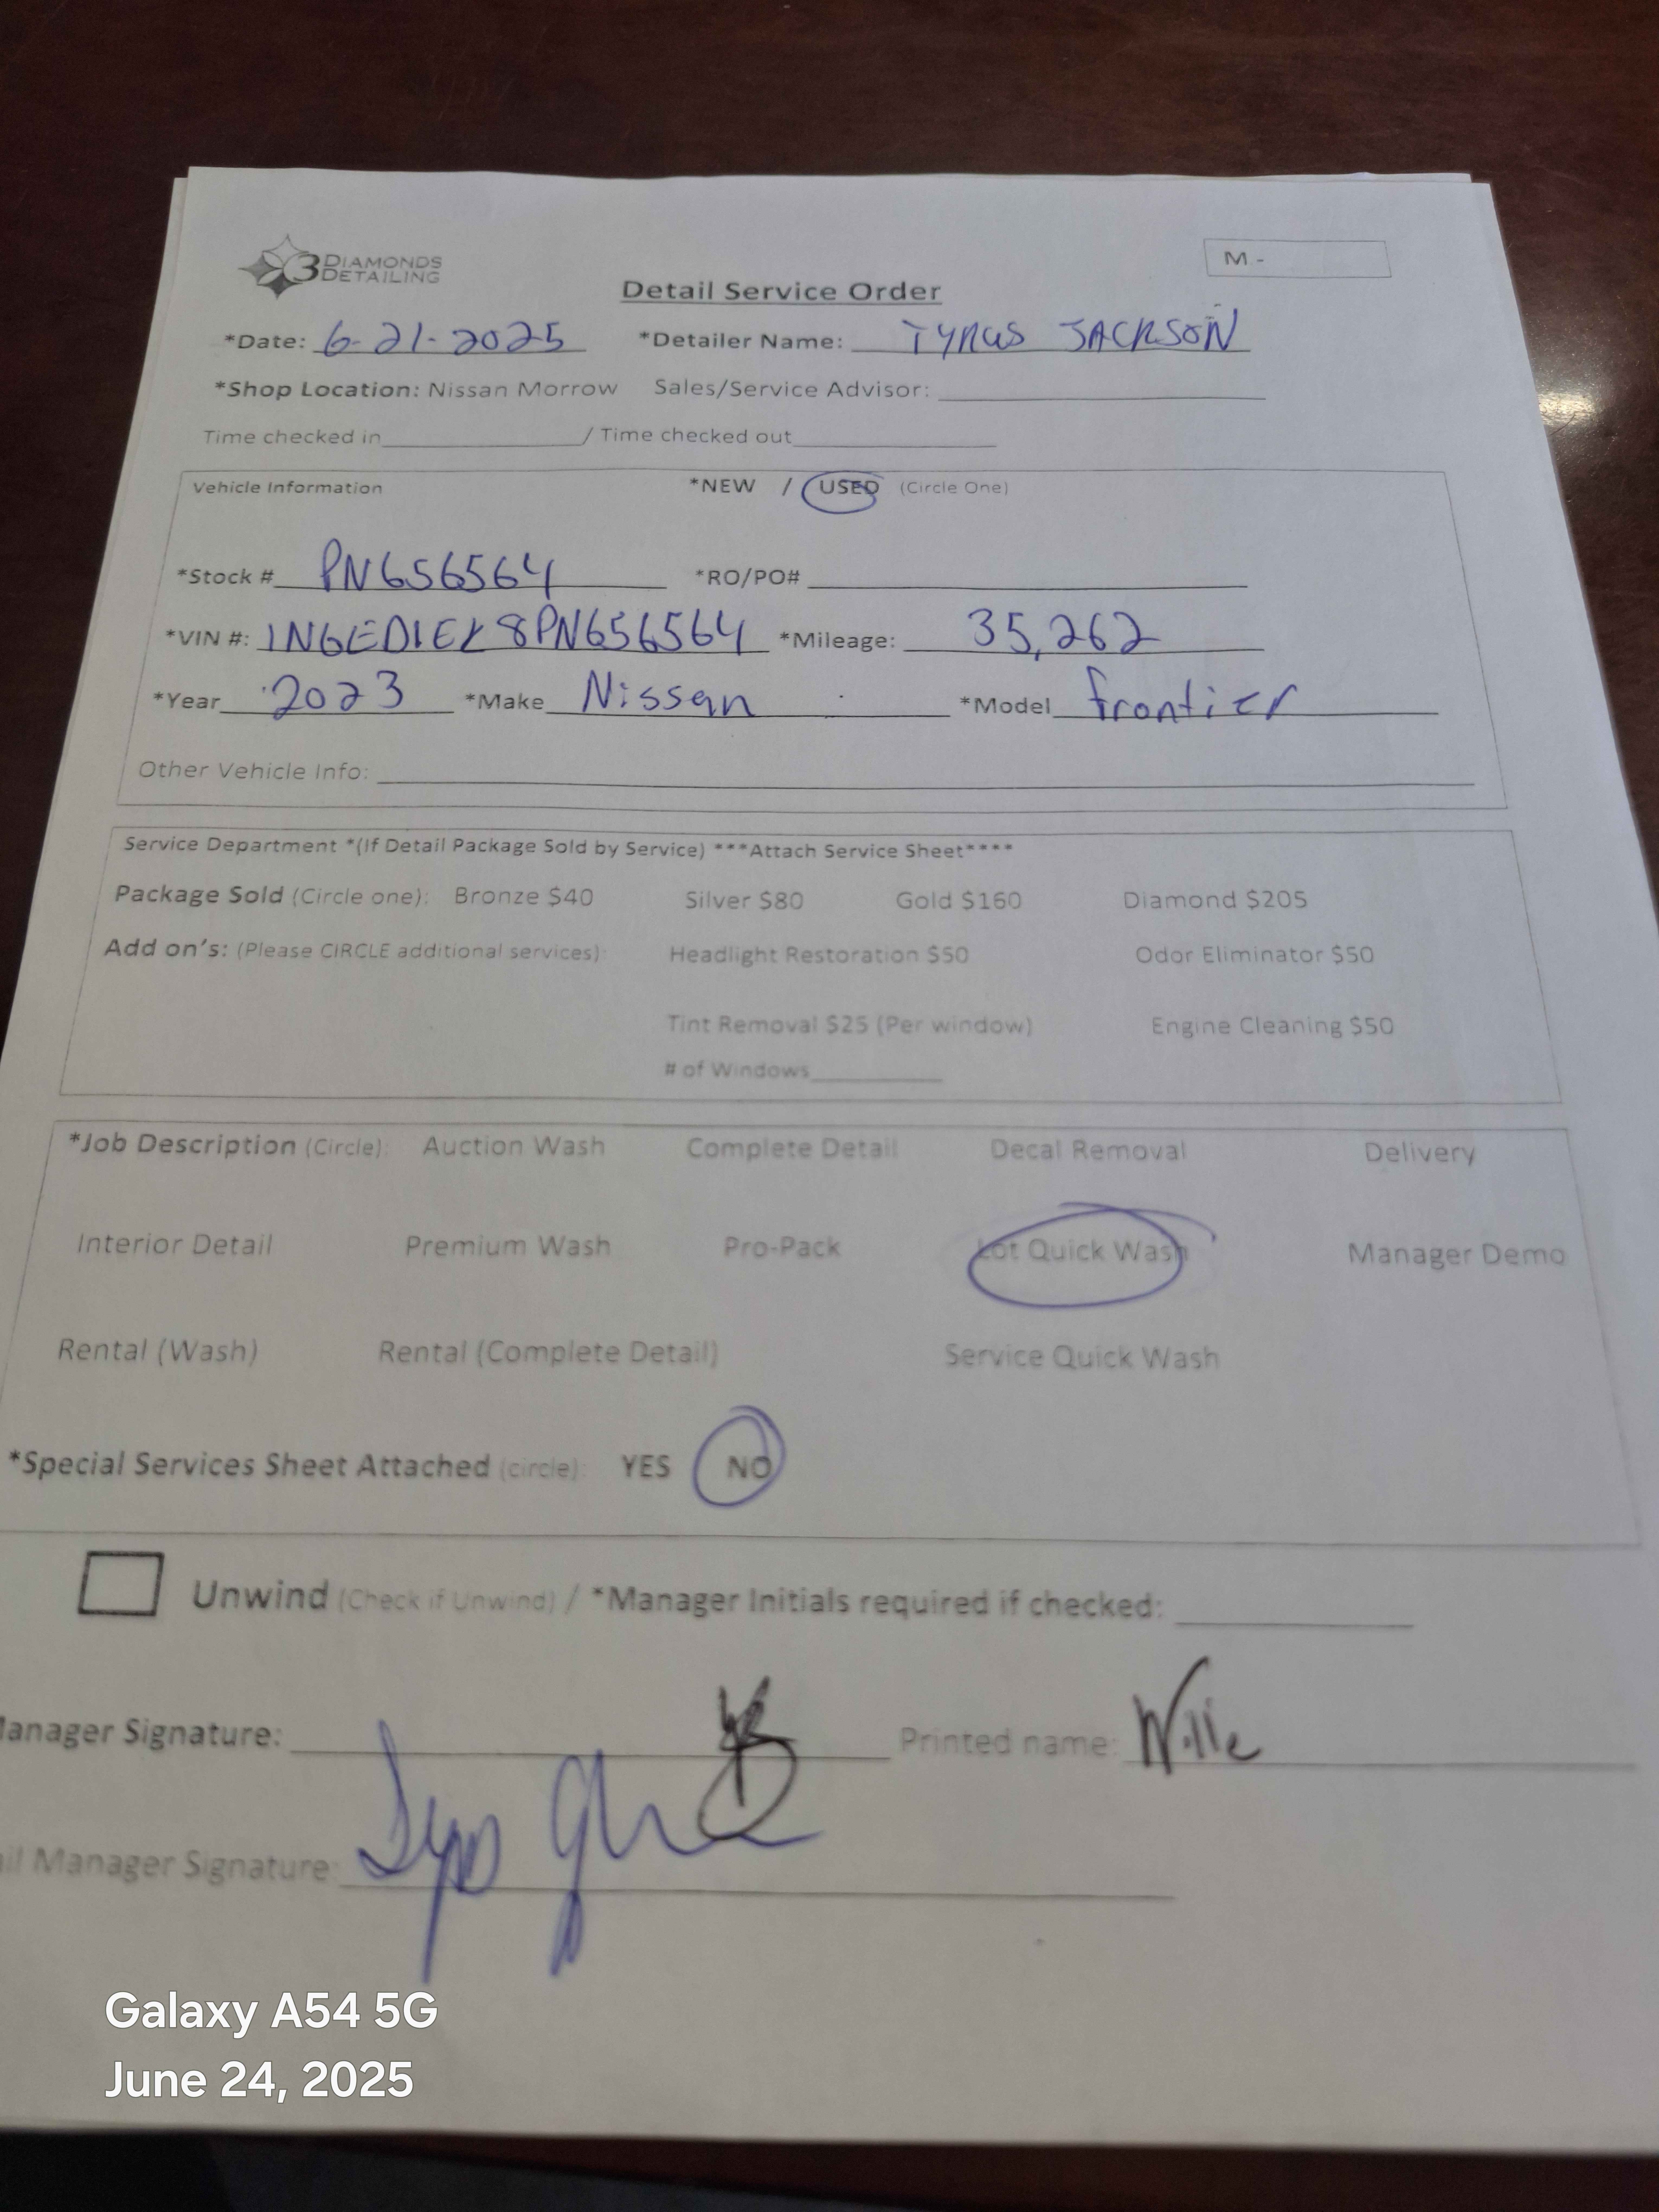 3 DIAMONDS DETAILING
M -
Detail Service Order
*Date: 6-21-2025 *Detailer Name: TYRUS JACKSON
*Shop Location: Nissan Morrow Sales/Service Advisor:
Time checked in / Time checked out
Vehicle Information *NEW / USED (Circle One)
*Stock # PN656564 *RO/PO#
*VIN #: 1N6ED1EK8PN656564 *Mileage: 35,262
*Year 2023 *Make Nissan *Model frontier
Other Vehicle Info:
Service Department *(If Detail Package Sold by Service) ***Attach Service Sheet****
Package Sold (Circle one): Bronze $40 Silver $80 Gold $160 Diamond $205
Add on's: (Please CIRCLE additional services): Headlight Restoration $50 Odor Eliminator $50
Tint Removal $25 (Per window) Engine Cleaning $50
# of Windows
*Job Description (Circle): Auction Wash Complete Detail Decal Removal Delivery
Interior Detail Premium Wash Pro-Pack Lot Quick Wash Manager Demo
Rental (Wash) Rental (Complete Detail) Service Quick Wash
*Special Services Sheet Attached (circle): YES NO
Unwind (Check if Unwind) / *Manager Initials required if checked:
Manager Signature: Printed name: Willie
Manager Signature:
Galaxy A54 5G
June 24, 2025